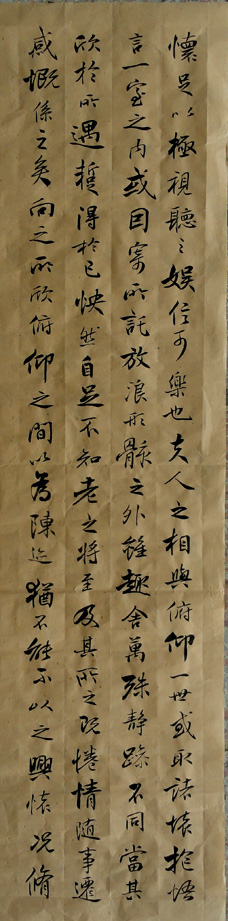 懷足以極視聽之娛信可樂也夫人之相與俯仰一世或取諸懷抱悟
言一室之內或因寄所託放浪形骸之外雖趣舍萬殊靜躁不同當其
欣於所遇蹔得於己怏然自足不知老之將至及其所之既惓情隨事遷
感慨係之矣向之所欣俛仰之間以為陳迹猶不能不以之興懷況脩